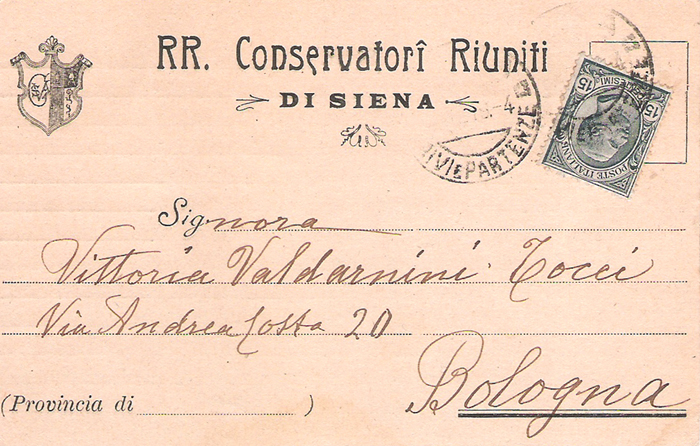 RR. Conservatorî Riuniti
DI SIENA
ARRIVI E PARTENZE
POSTE ITALIANE
15 CENTESIMI 15
Signora
Vittoria Valdarnini Tocci
Via Andrea Costa 20
Bologna
(Provincia di )